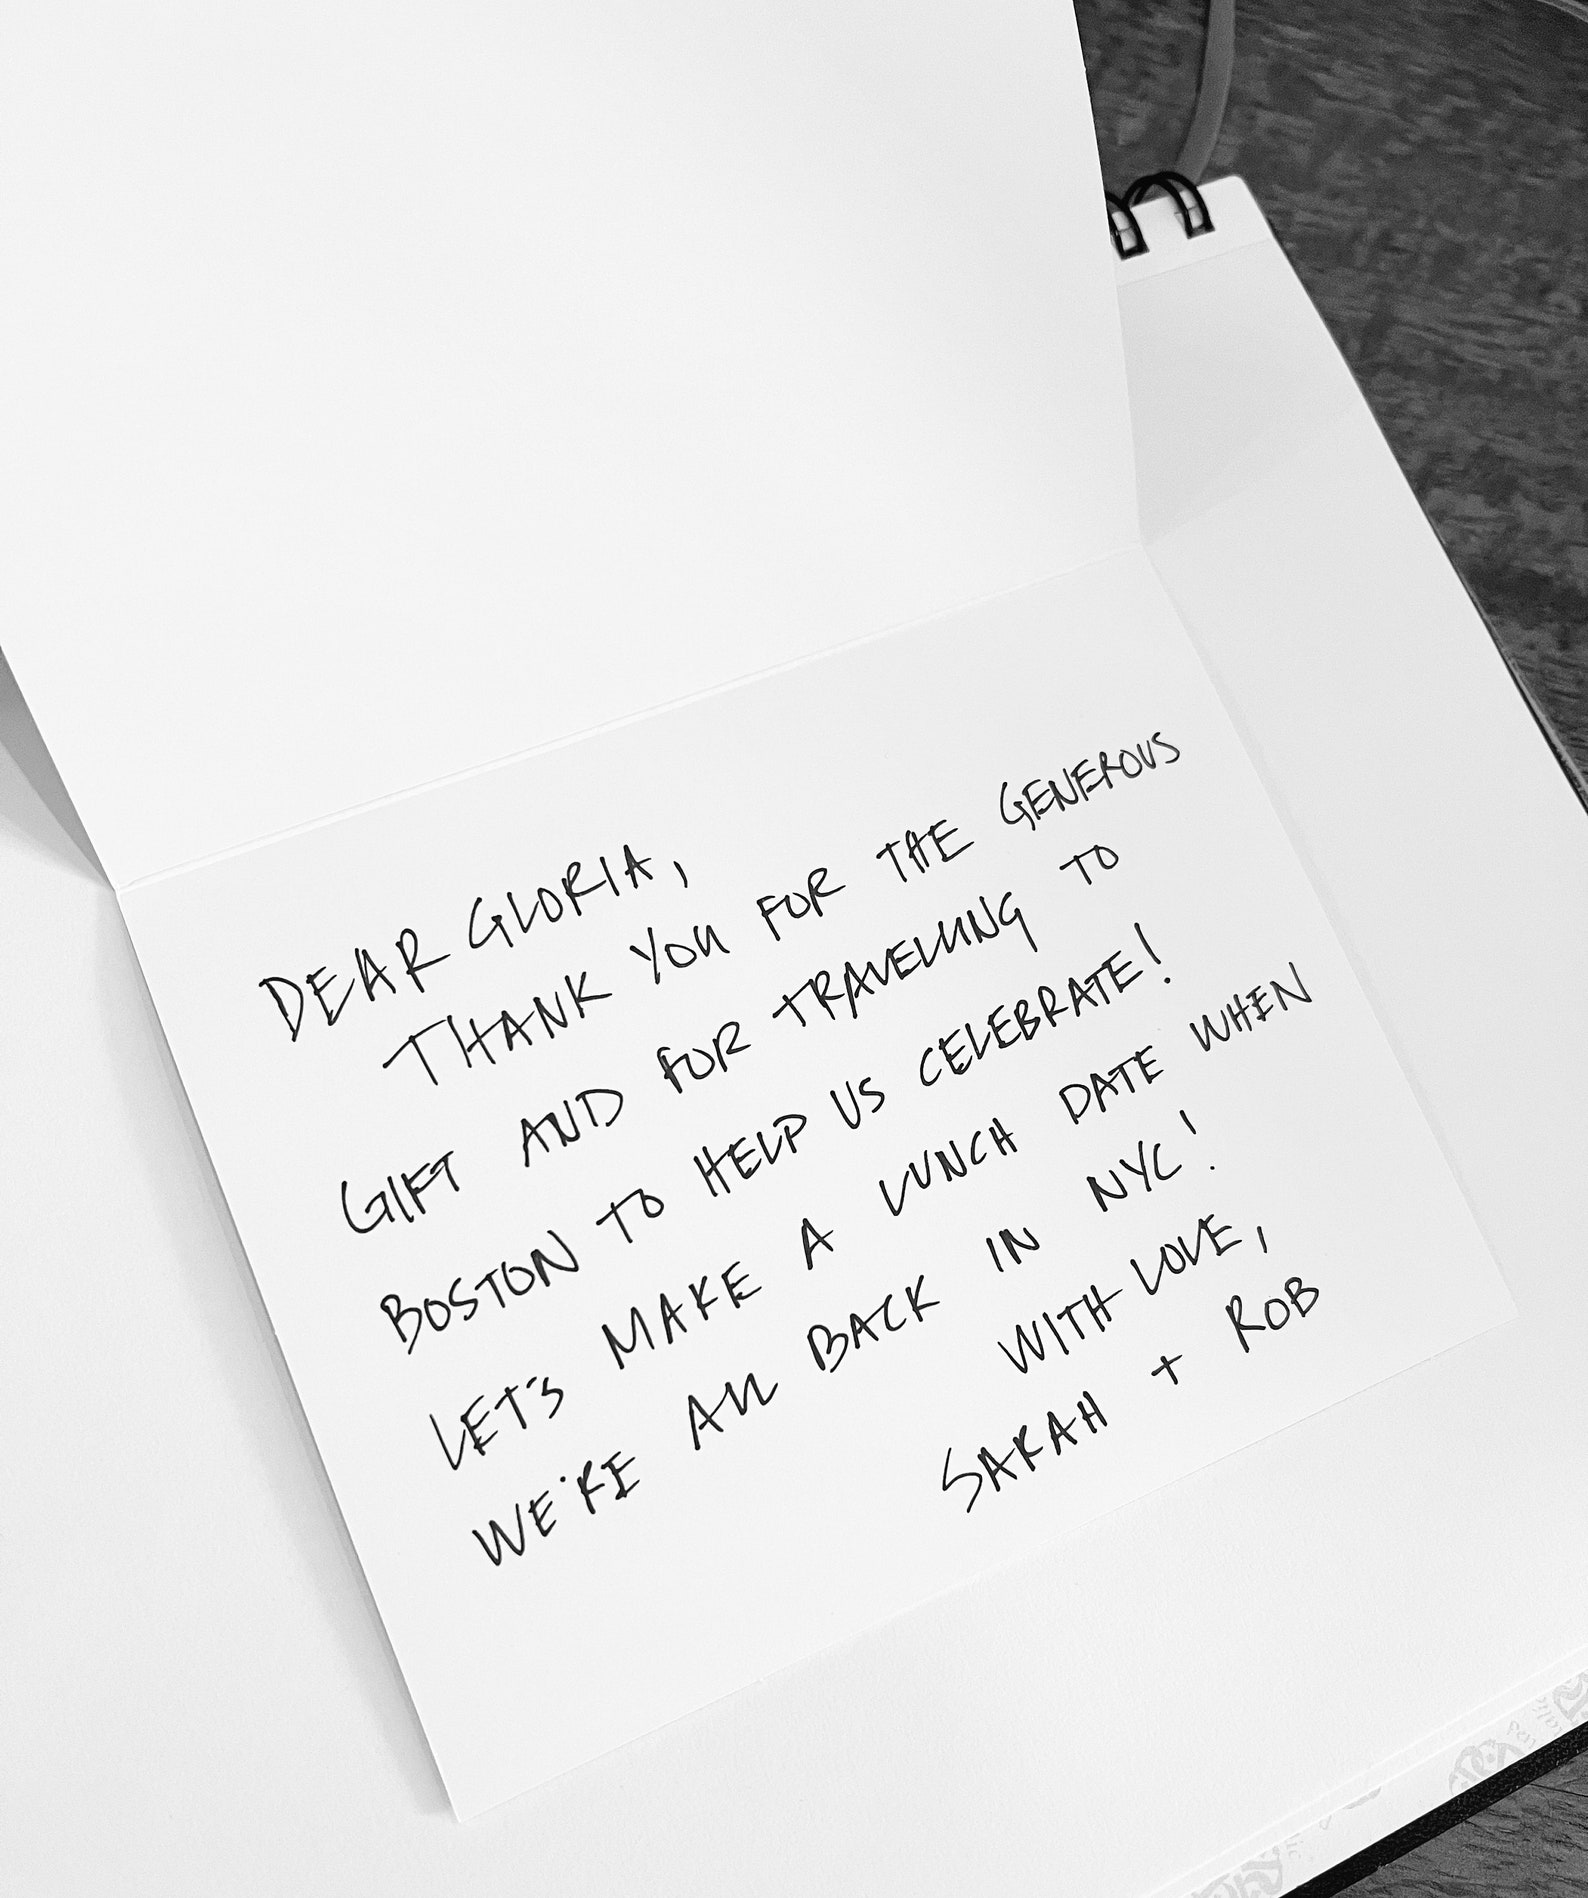 DEAR GLORIA,
THANK YOU FOR THE GENEROUS
GIFT AND FOR TRAVELLING TO
BOSTON TO HELP US CELEBRATE!
LET'S MAKE A LUNCH DATE WHEN
WE'RE ALL BACK IN NYC!
WITH LOVE,
SARAH + ROB